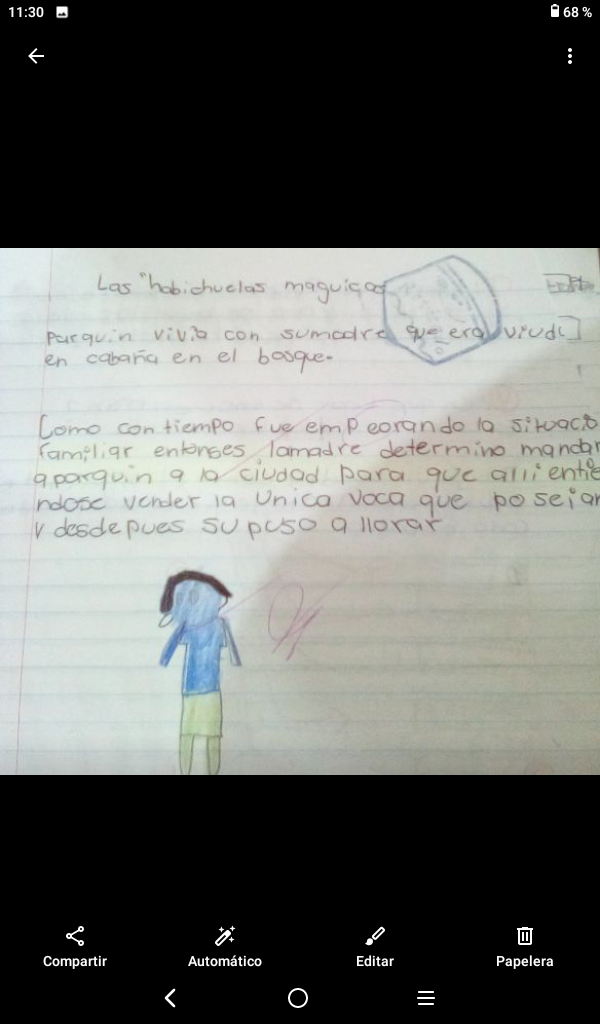 11:30
68 %
Las "habichuelas maguicas
parquin vivia con sumadre que era viuda
en cabaña en el bosque.
Como con tiempo fue empeorando la situacio
familiar entonses lamadre determino mandar
aparquin a la ciudad para que alli ente
ndose vender la unica vaca que poseian
y desdepues su puso a llorar
Compartir
Automático
Editar
Papelera